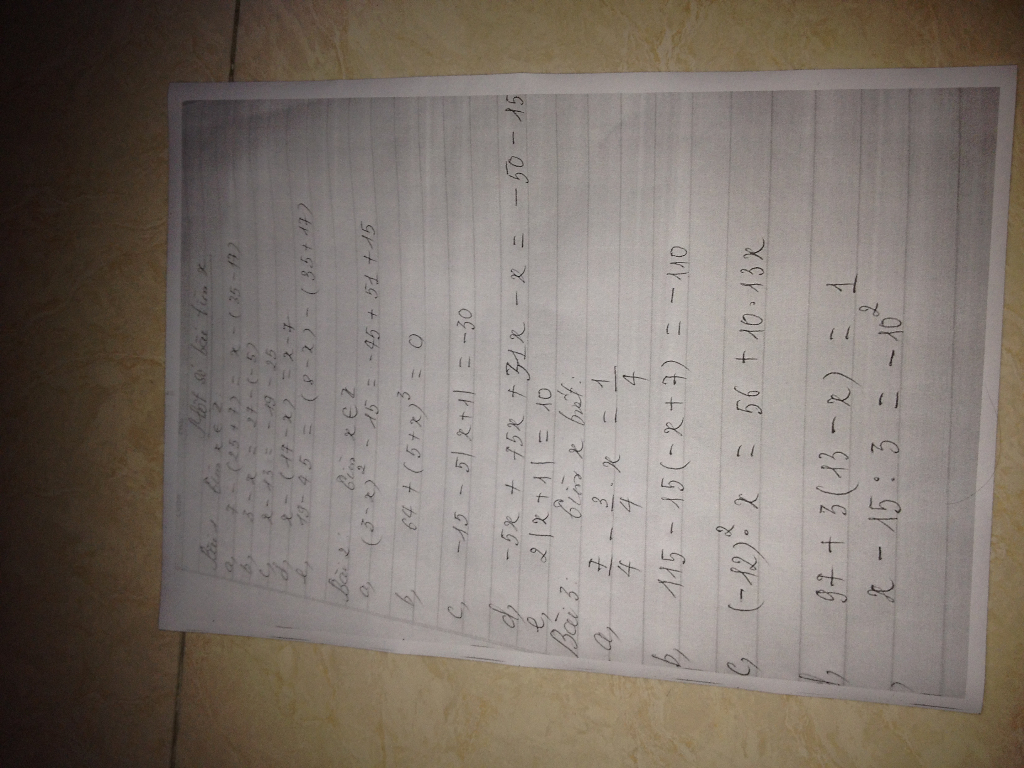 Một số bài tìm x
Bài 1 tìm x ∈ Z
a, 7 - (23 + 7) = x - (35 - 17)
b, 3 - x = 27 - (-5)
c, x - 13 = -19 - 25
d, x - (17 - x) = x - 7
e, 19 - 45 = (8 - x) - (35 + 17)
Bài 2: tìm x ∈ Z
a, (3 - x)² - 15 = -75 + 51 + 15
b, 64 + (5 + x)³ = 0
c, -15 - 5|x + 1| = -30
d, -5x + 75x + 31x - x = -50 - 15
e, 2|x + 1| = 10
Bài 3: tìm x biết:
a, 7/4 - 3/4 . x = 1/4
b, 115 - 15(-x + 7) = -110
c, (-12)² . x = 56 + 10 . 13x
97 + 3(13 - x) = 1
x - 15 : 3 = -10²